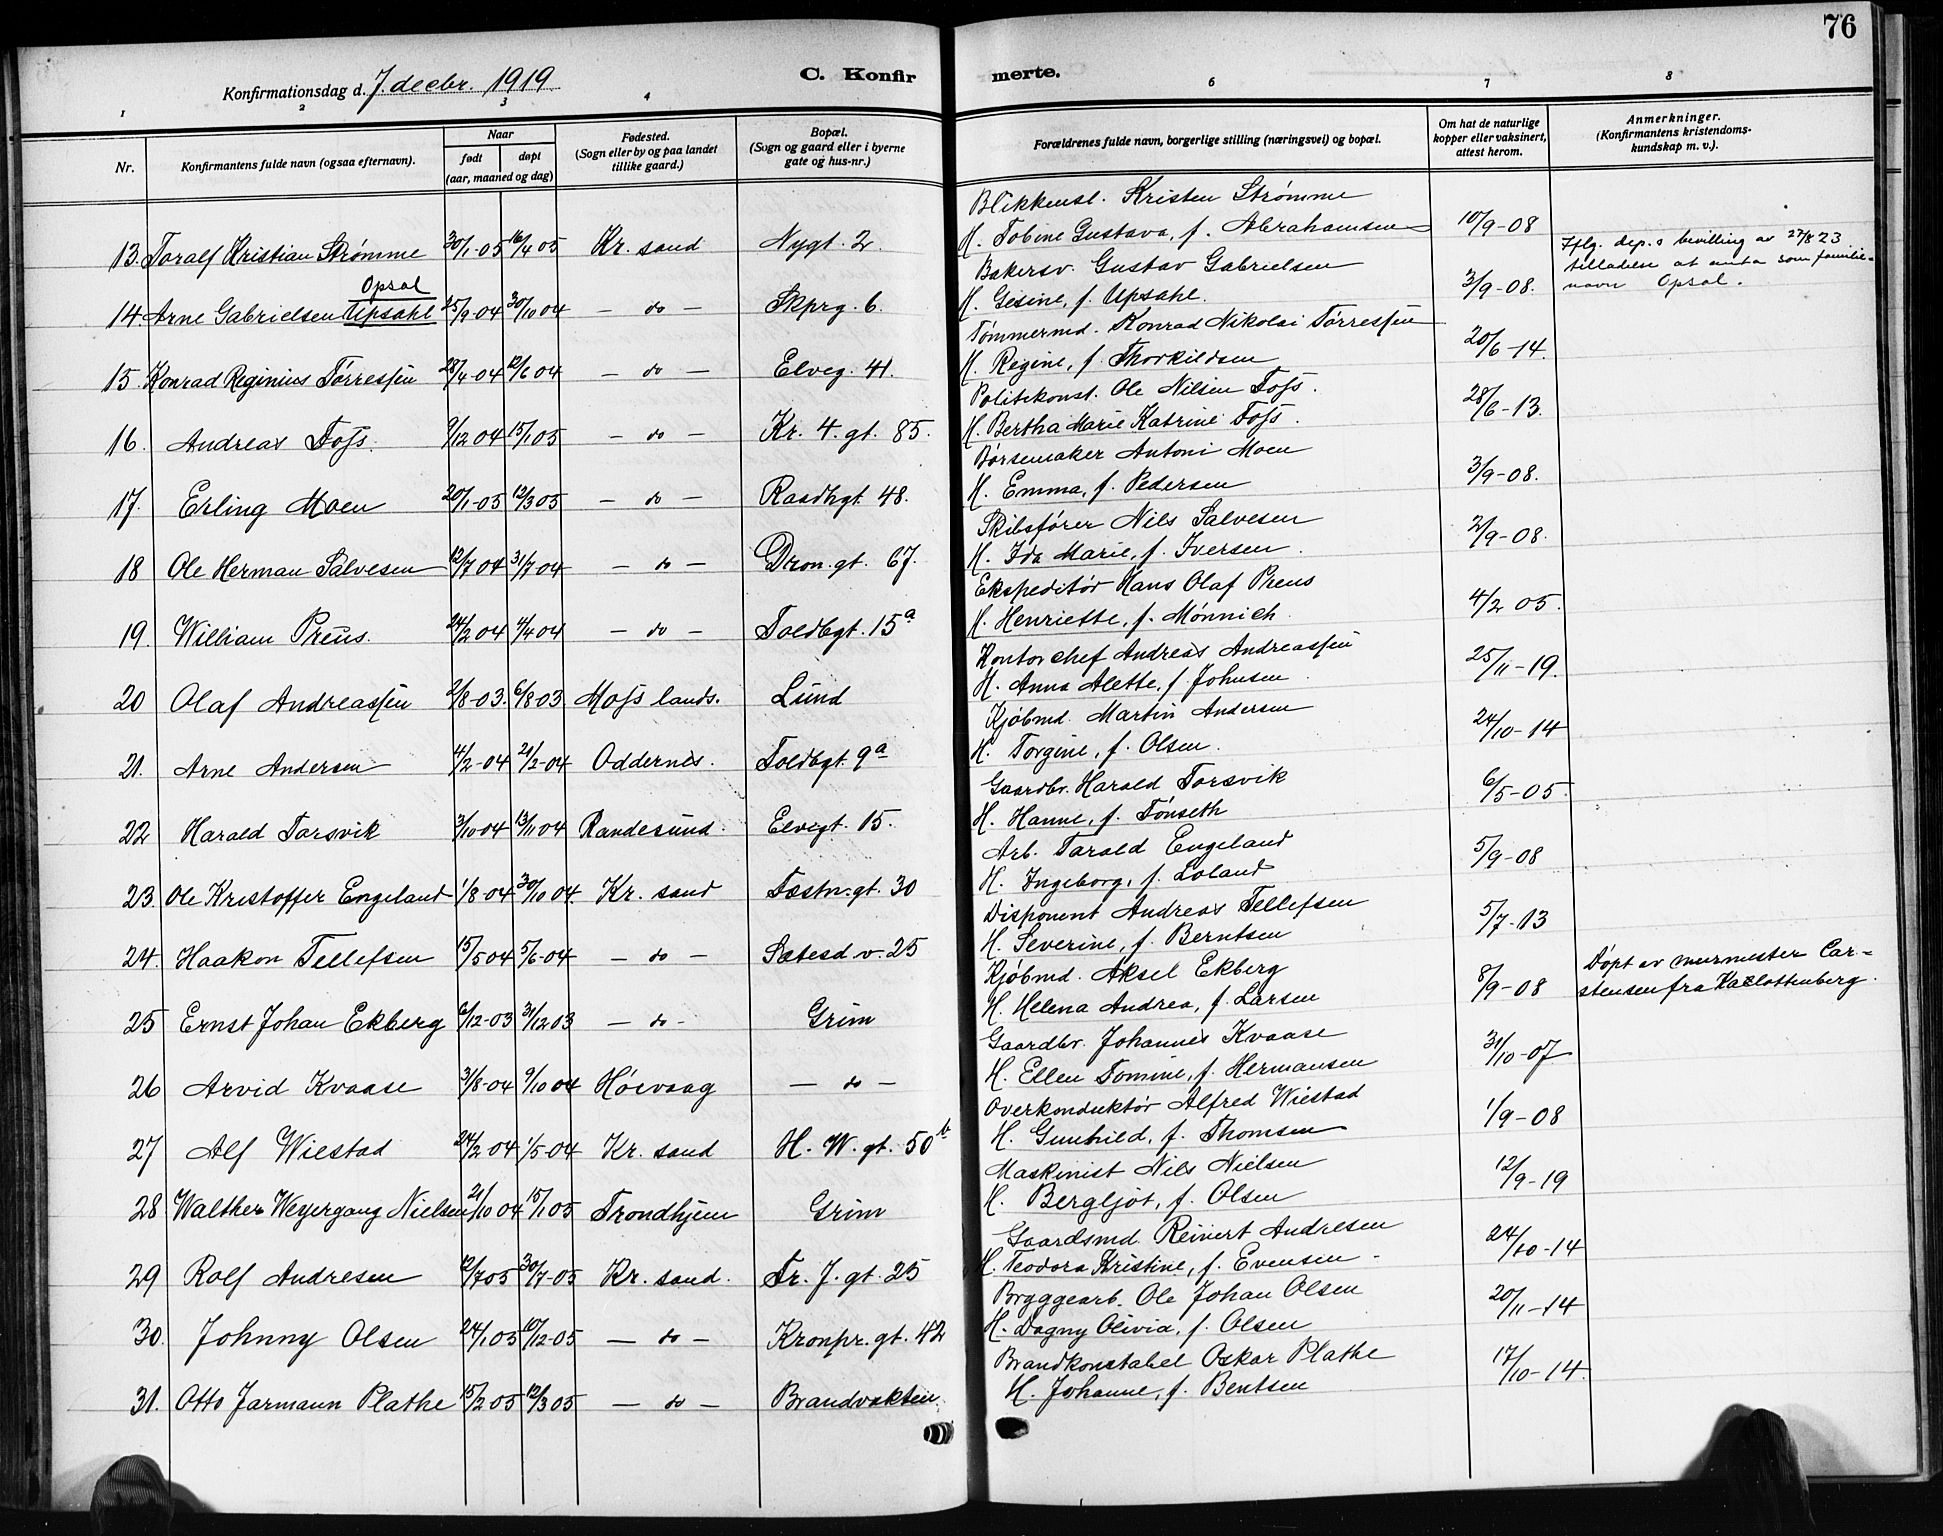 76
Konfirmationsdag d. 7. decbr. 1919.
C. Konfirmerte.
1 2 3 4 6 7 8
Nr.
Konfirmantens fulde navn (ogsaa efternavn).
Naar
født
døpt
(aar, maaned og dag)
Fødested.
(Sogn eller by og paa landet
tillike gaard.)
Bopæl.
(Sogn og gaard eller i byerne
gate og hus-nr.)
Forældrenes fulde navn, borgerlige stilling (næringsvei) og bopæl.
Om hat de naturlige
kopper eller vaksinert,
attest herom.
Anmerkninger.
(Konfirmantens kristendoms-
kundskap m. v.).
Blikkensl. Kristen Strømme
13. Toralf Kristian Strømme 30/1-05 16/4 05 Kr. sand Nygt. 2. H. Tobine Gustava, f. Abrahamsen 10/9-08
Opsal
Bakersv. Gustav Gabrielsen
14 Arne Gabrielsen Upsahl 25/9-04 30/10 04 - do - Skprg. 6. H. Gesine, f. Upsahl. 3/9-08.
Iflg. dep.s bevilling av 27/8 23
tilladelse at anta som familie-
navn Opsal.
Tømmermd. Konrad Nikolai Tørressen
15. Konrad Reginius Tørressen 28/4-04 12/6 04 - do - Elveg. 41. H. Regine, f. Thorkildsen 20/6-14.
Politikonst. Ole Nilsen Foss.
16. Andreas Foss. 9/12 04 15/1 05 - do - Kr. 4. gt. 85. H. Bertha Marie Katrine Foss. 28/6-13.
Børsemaker Antoni Moen
17. Erling Moen 20/1-05 12/3 05 - do - Raadhgt. 48. H. Emma, f. Pedersen 3/9-08.
Skibsfører Nils Salvesen
18 Ole Herman Salvesen 12/7 04 31/7 04 - do - Dron. gt. 67. H. Ida Marie, f. Iversen. 2/9-08.
Ekspeditør Hans Olaf Preus
19. William Preus. 24/2 04 4/4 04 - do - Toldbgt. 15a H. Henriette, f. Mønnich. 4/2 05.
Kontorchef Andreas Andreassen
20 Olaf Andreassen 2/8-03. 6/8 03 Moss lands. Lund H. Anna Alette, f. Johnsen. 25/11-19.
Kjøbmd. Martin Andersen
21. Arne Andersen 4/2-04 21/2-04 Oddernes. Toldbgt. 9a H. Torgine, f. Olsen. 24/10-14
Gaardbr. Harald Torsvik
22 Harald Torsvik 3/10 04 13/11 04 Randesund. Elvegt. 15. H. Hanne, f. Tønseth 6/5-05.
Arb. Tarald Engeland
23. Ole Kristoffer Engeland 1/8-04 30/10 04 Kr. sand Festn. gt. 30 H. Ingeborg, f. Loland 5/9-08
Disponent Andreas Tellefsen
24. Haakon Tellefsen 15/5 04 5/6-04 - do - Sætesd v. 25 H. Severine, f. Berntsen 5/7-13
Kjøbmd. Aksel Ekberg
25 Ernst Johan Ekberg 6/12-03 31/12 03 - do - Grim H. Helena Andrea, f. Larsen 8/9-08
Døpt av murmester Car-
stensen fra Kaslottenberg.
Gaardbr. Johannes Kvaase
26 Arvid Kvaase 3/8-04 9/10 04 Høevaag - do - H. Ellen Tomine, f. Hermansen 31/10-07
Overkonduktør Alfred Wiestad
27 Alf Wiestad 24/2 04 1/5-04 Kr. sand H. W. gt. 50b H. Gunhild, f. Thomsen 1/9-08
Maskinist Nils Nielsen
28 Walther Weyergang Nielsen 21/10 04 15/1 05 Trondhjem Grim H. Bergljot, f. Olsen 12/9-19
Gaardsmd. Reinert Andresen
29 Rolf Andresen 12/7 05 30/7-05 Kr. sand. Fr. J. gt. 25 H. Teodora Kristine, f. Evensen - 24/10-14
Bryggearb. Ole Johan Olsen
30. Johnny Olsen 24/1 05 10/12-05 - do - Kronpr. gt. 42 H. Dagny Olivia, f. Olsen 20/11-14
Brandkonstabel Oskar Plathe
31. Otto Jarmann Plathe 15/2 05 12/3 05 - do - Brandvakten. H. Johanne, f. Bentsen 17/10-14.